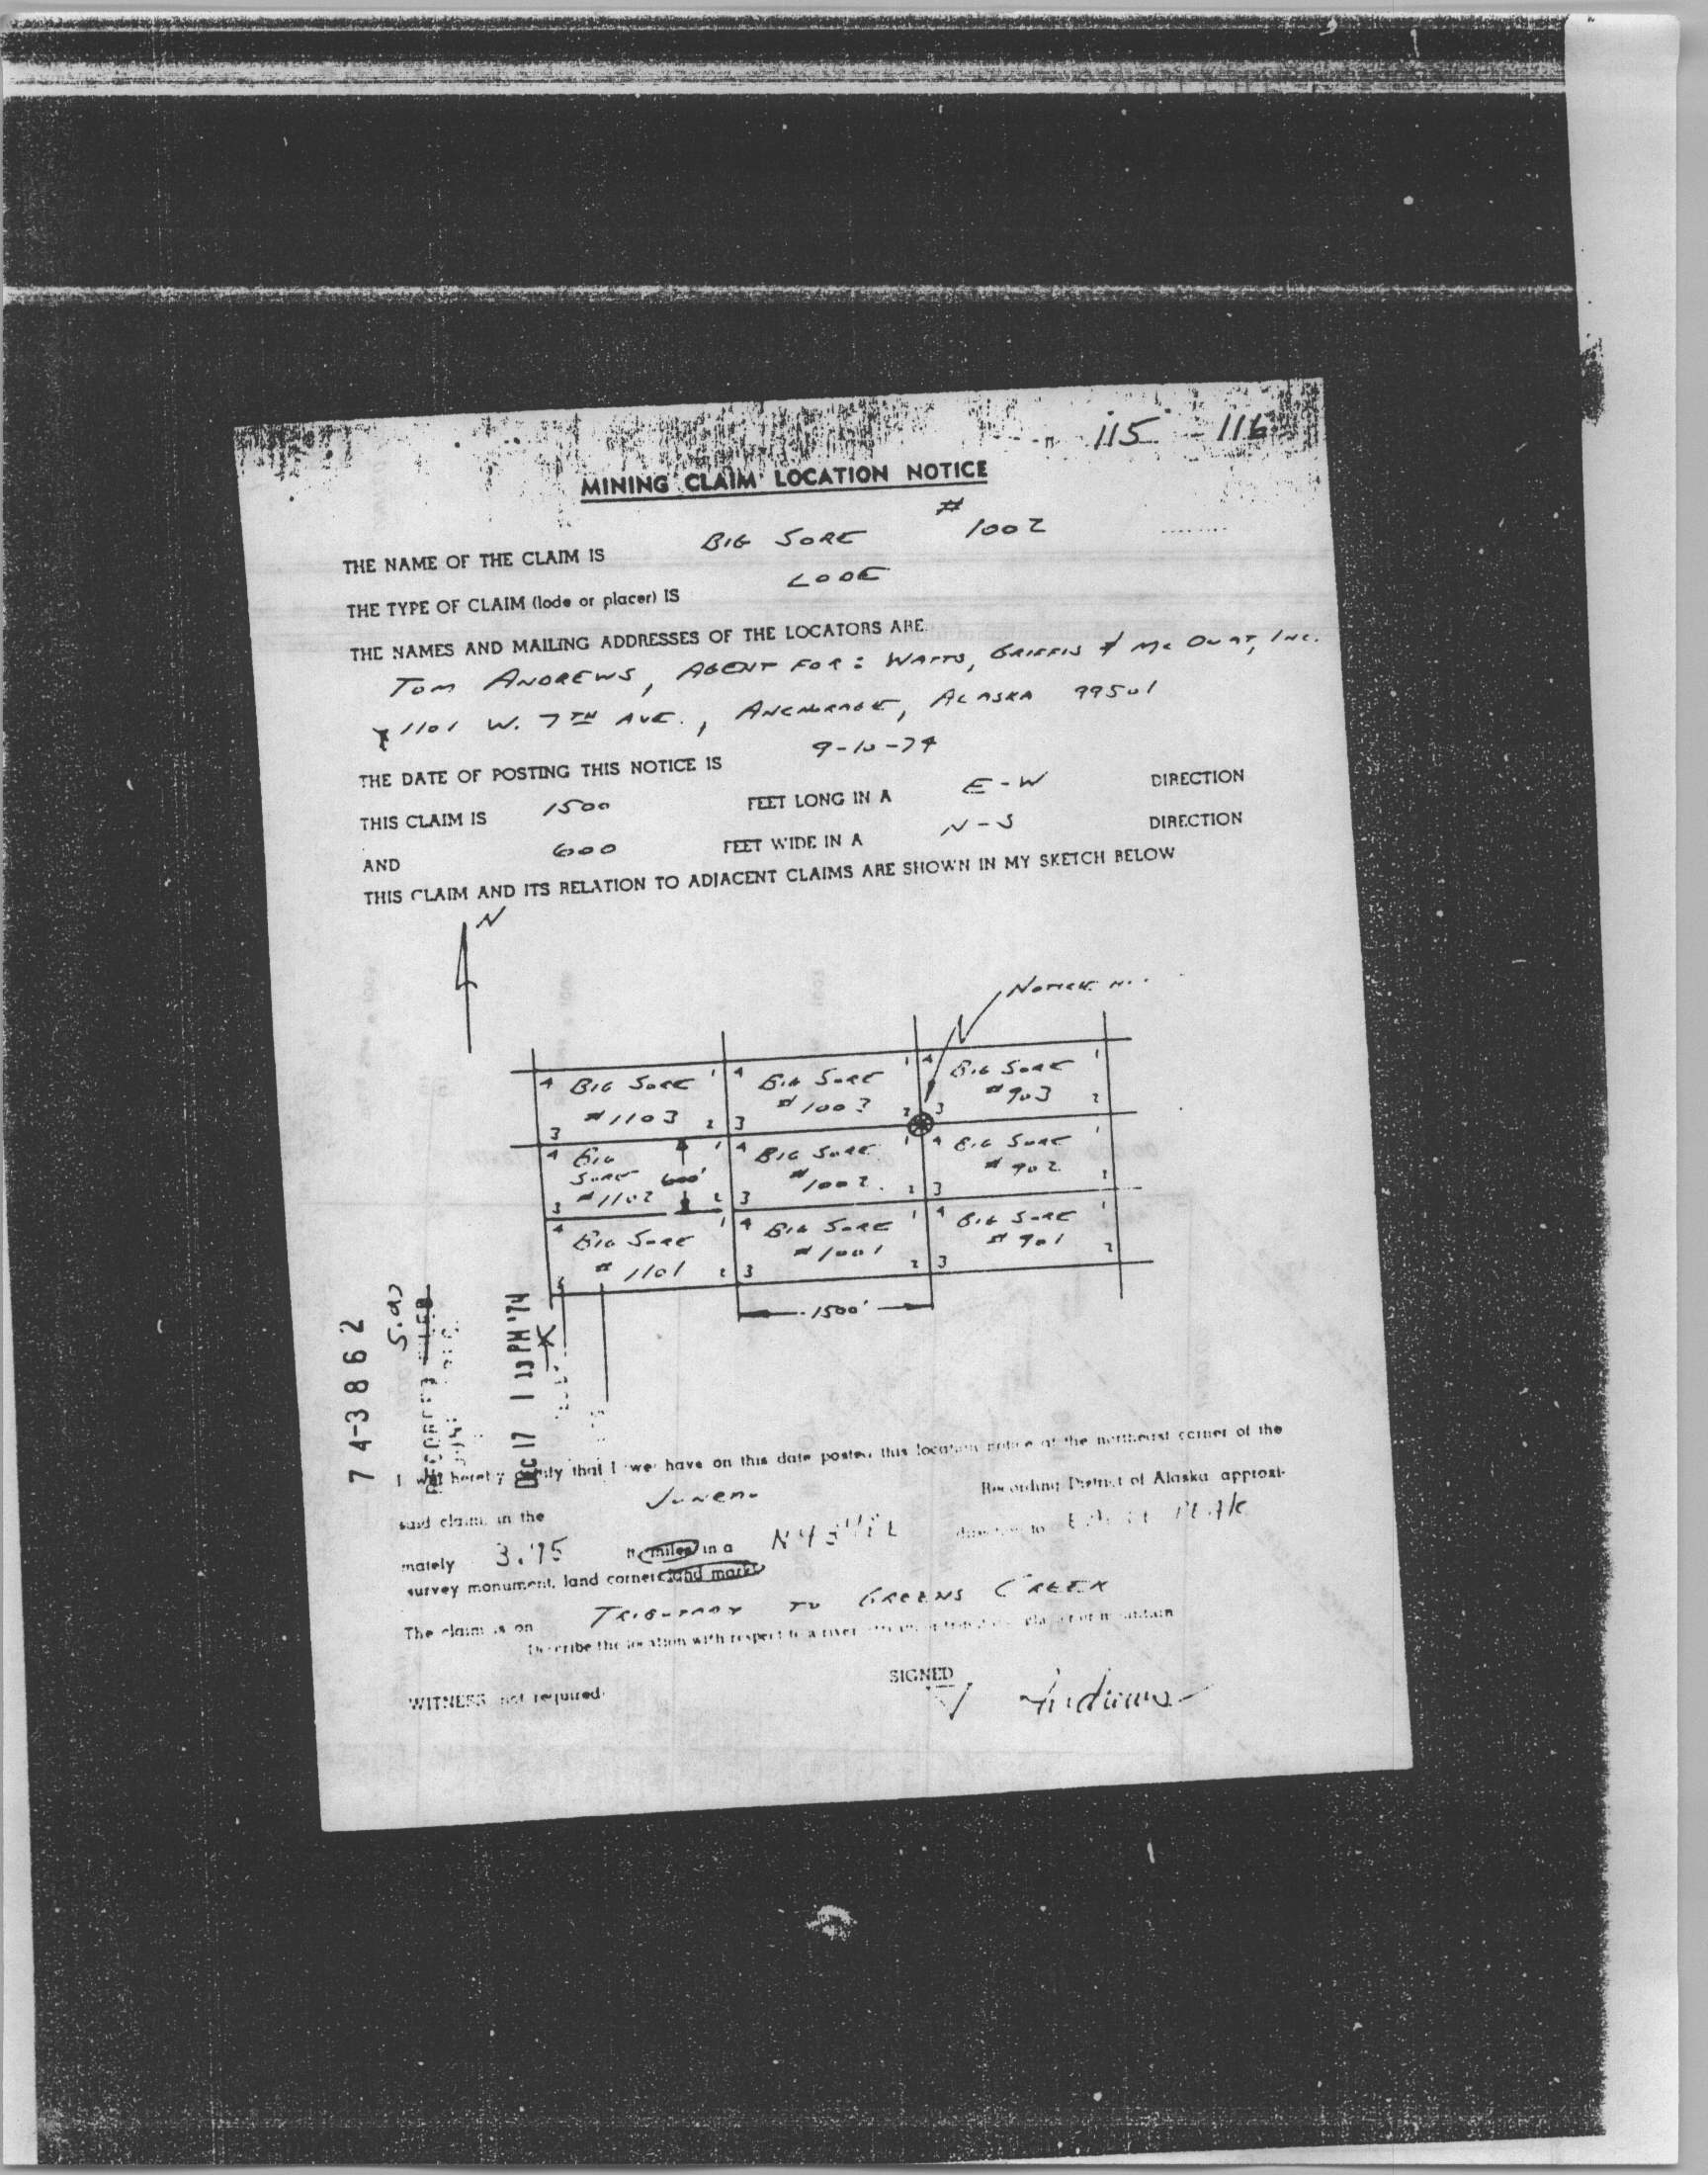 115 - 116
MINING CLAIM LOCATION NOTICE
THE NAME OF THE CLAIM IS BIG SORE # 1002
THE TYPE OF CLAIM (lode or placer) IS LODE
THE NAMES AND MAILING ADDRESSES OF THE LOCATORS ARE
TOM ANDREWS, AGENT FOR: WATTS, GRIFFIS & Mc OUAT, INC.
1101 W. 7TH AVE., ANCHORAGE, ALASKA 99501
THE DATE OF POSTING THIS NOTICE IS 9-10-74
THIS CLAIM IS 1500 FEET LONG IN A E-W DIRECTION
AND 600 FEET WIDE IN A N-S DIRECTION
THIS CLAIM AND ITS RELATION TO ADJACENT CLAIMS ARE SHOWN IN MY SKETCH BELOW
N
NOTICE
4 BIG SORE 1 4 BIG SORE 1 4 BIG SORE 1
3 #1103 2 3 #1003 2 3 #903 2
4 BIG SORE 600' 1 4 BIG SORE 1 4 BIG SORE 1
3 #1102 2 3 #1002 2 3 #902 2
4 BIG SORE 1 4 BIG SORE 1 4 BIG SORE 1
3 #1101 2 3 #1001 2 3 #901 2
1500'
74-3862
5.00
RECORDED FILED
DEC 17 1 13 PM '74
I (we) hereby certify that I (we) have on this date posted this location notice at the northeast corner of the
said claim, in the JUNEAU Recording District of Alaska approxi-
mately 3.75 ft. miles in a direction to PEAK
survey monument, land corner, land mark
The claim is on TRIBUTARY TO GREENS CREEK
Describe the location with respect to a river
SIGNED Andrews
WITNESS not required